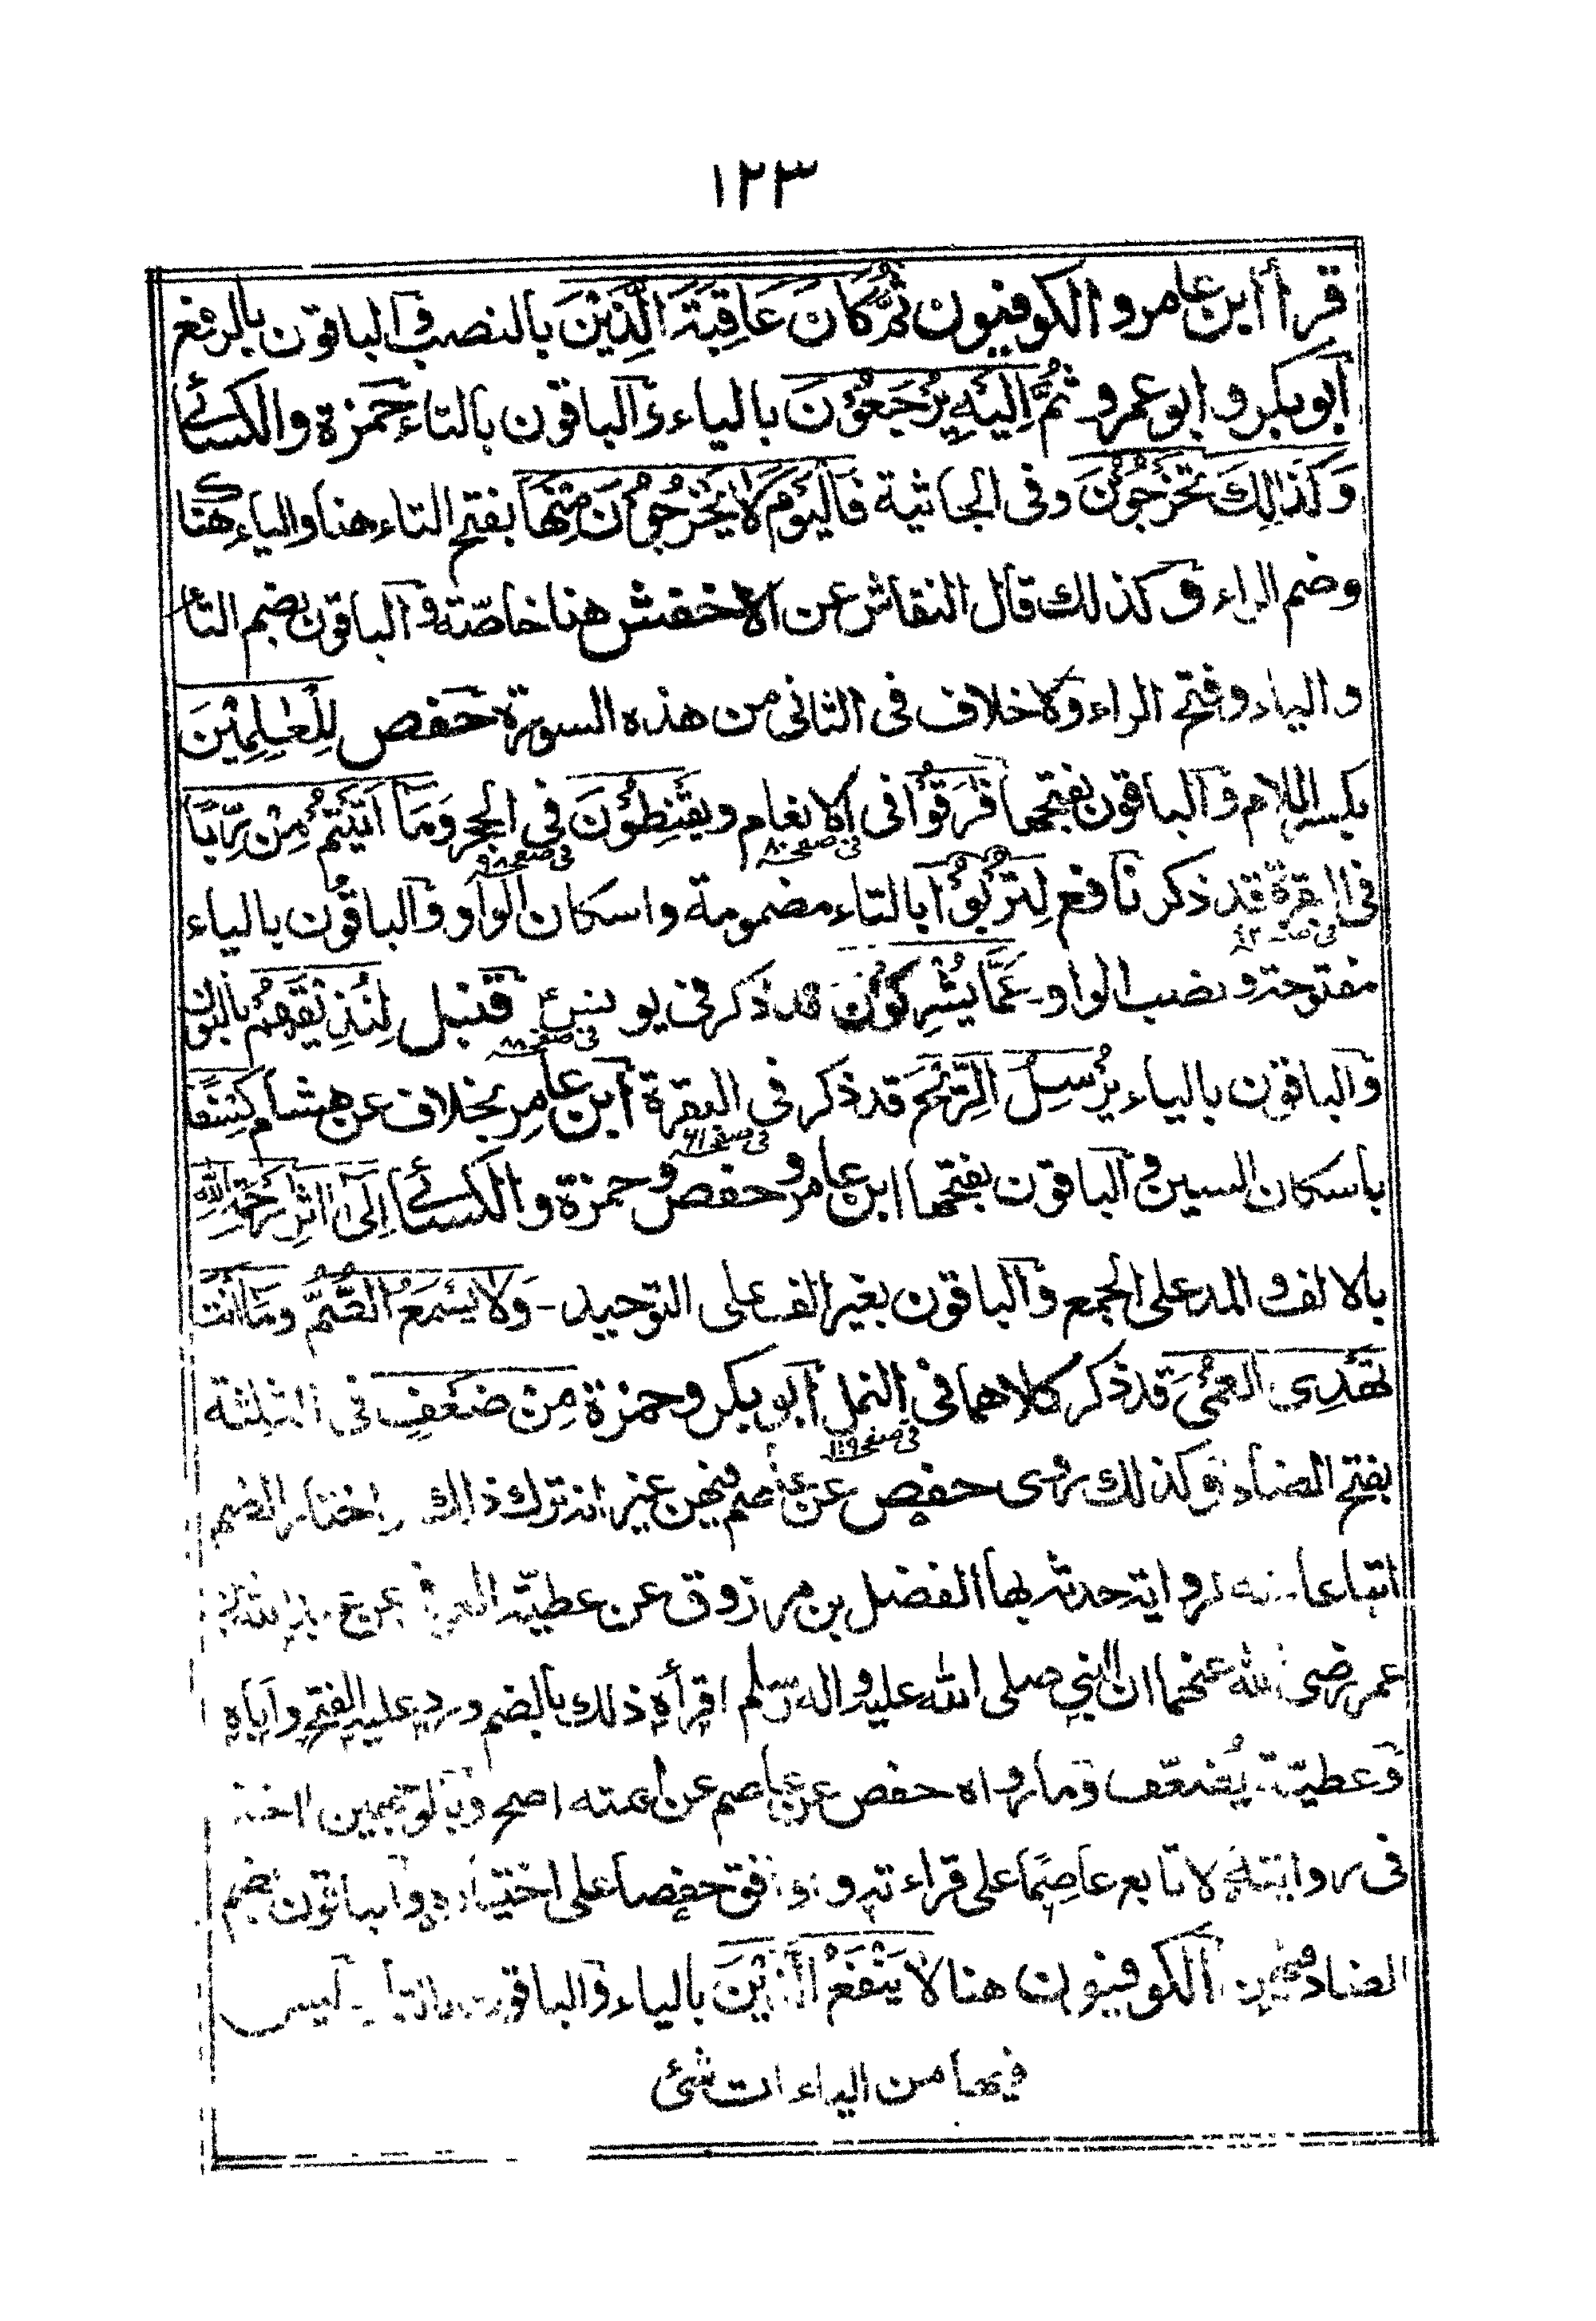 ١٢٣
قرأ ابن عامر والكوفيون ثُمَّ كَانَ عَاقِبَةَ الَّذِيْنَ بالنصب والباقون بالرفع
ابوبكر وابوعمرو ثُمَّ اِلَيْهِ يُرْجَعُوْنَ بالياء والباقون بالتاء حمزة والكسائى
وَكَذٰلِكَ تَخْرُجُوْنَ وفى الجاثية فَالْيَوْمَ لَا يَخْرُجُوْنَ مِنْهَا بفتح التاء هنا والياء هناك
وضم الراء وكذلك قال النقاش عن الاخفش هنا خاصّة والباقون بضم التاء
والياء وفتح الراء ولا خلاف فى الثانى من هذه السورة حفص لِلْعٰلِمِيْنَ
بكسر اللام والباقون بفتحها فَرَّقُوْا فى الانعام ويَقْنِطُوْنَ فى الحجر وَمَا اٰتَيْتُمْ مِنْ رِّبًا
فى صفحه ٨٠ فى صفحه ٩٨
فى البقرة قد ذكر نافع لِتُرْبُوْا بالتاء مضمومة واسكان الواو والباقون بالياء
فى صـ ٦٢
مفتوحة ونصب الواو - عَمَّا يُشْرِكُوْنَ قد ذكر فى يونس قنبل لِنُذِيْقَهُمْ بالنون
فى صفحه ٨٨
والباقون بالياء يُرْسِلُ الرِّيٰحَ قد ذكر فى البقرة ابن عامر بخلاف عن هشام كِسْفًا
فى صفحه ٦١
باسكان السين والباقون بفتحها ابن عامر وحفص وحمزة والكسائى اِلٰى اٰثٰرِ رَحْمَةِ اللّٰهِ
بالالف والمد على الجمع والباقون بغير الف على التوحيد - وَلَا يَسْمَعُ الصُّمُّ ومَا اَنْتَ
تَهْدِى الْعُمْىَ قد ذكر كلاهما فى النمل ابوبكر وحمزة مِنْ ضَعْفٍ فى الثلثة
فى صفحه ١١٩
بفتح الضاد وكذلك روى حفص عن عاصم فيهن غير انه ترك ذالك واختار الضم
اتباعا منه لرواية حدثه بها الفضل بن مرزوق عن عطيّة العوفى عن عبد الله بن
عمر رضى الله عنهما ان النبى صلى الله عليه واله وسلم اقرأه ذلك بالضم ورد عليه الفتح واباه
وعطيّة يُضعّف وما رواه حفص عن عاصم عن ائمته اصح وبالوجهين اخذ
فى روايته لاتابع عاصِمًا على قراءته واوافق حفصا على اختياره والباقون بضم
الضاد فيهن الكوفيون هنا لَا يَنْفَعُ الَّذِيْنَ بالياء والباقون بالتاء - ليس
فيها من الياءات شئ